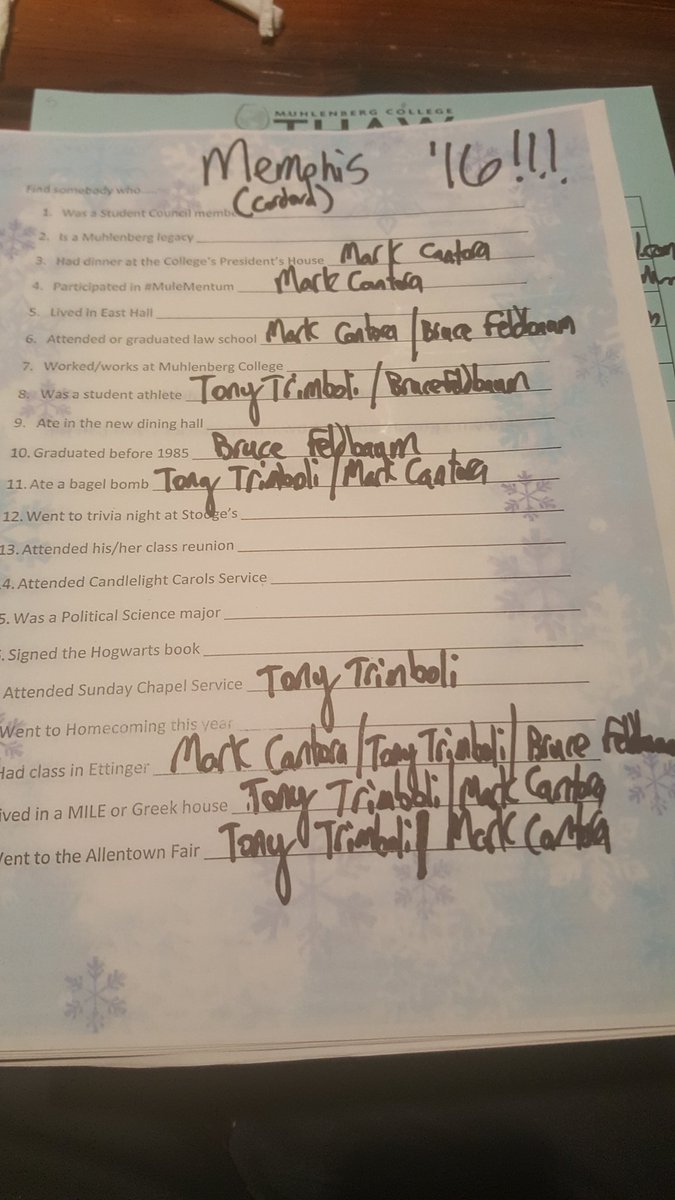 MUHLENBERG COLLEGE
THAW
Memphis '16!!!
(Cordova)
Find somebody who....
1. Was a Student Council memb
2. Is a Muhlenberg legacy
3. Had dinner at the College's President's House Mark Cantora
4. Participated in #MuleMentum Mark Cantora
5. Lived in East Hall
6. Attended or graduated law school Mark Cantora / Bruce Feldbaum
7. Worked/works at Muhlenberg College
8. Was a student athlete Tony Trimboli / Bruce Feldbaum
9. Ate in the new dining hall
10. Graduated before 1985 Bruce Feldbaum
11. Ate a bagel bomb Tony Trimboli / Mark Cantora
12. Went to trivia night at Stooge's
13. Attended his/her class reunion
4. Attended Candlelight Carols Service
5. Was a Political Science major
. Signed the Hogwarts book
Attended Sunday Chapel Service Tony Trimboli
Went to Homecoming this year
Had class in Ettinger Mark Cantora / Tony Trimboli / Bruce Feldbaum
ived in a MILE or Greek house Tony Trimboli / Mark Cantora
ent to the Allentown Fair Tony Trimboli / Mark Cantora